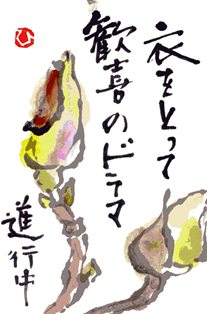 衣をとって
歓喜のドラマ
進行中
ひ